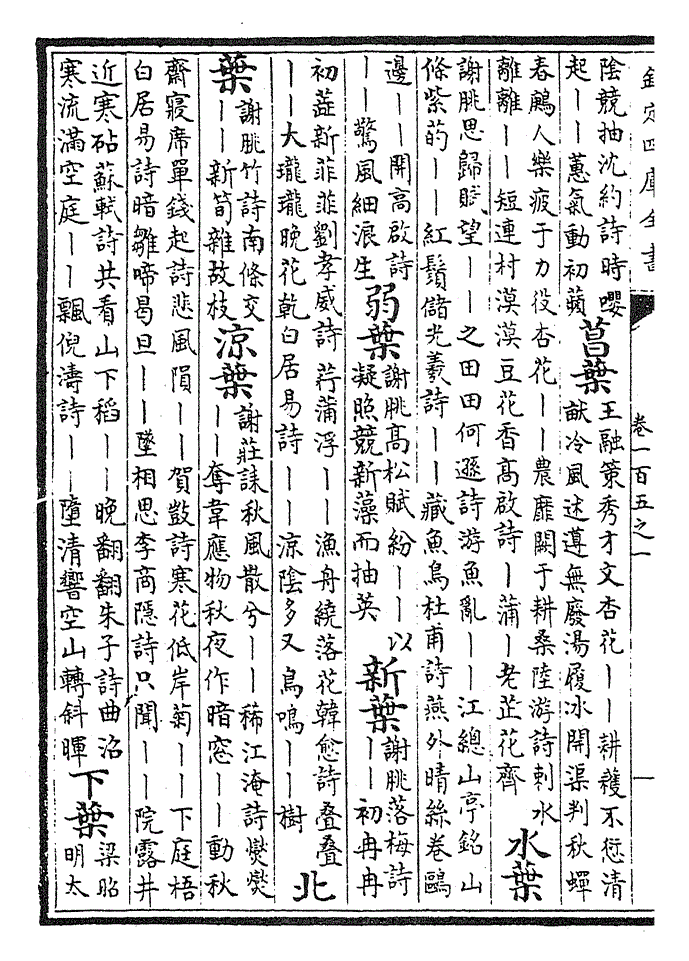 欽定四庫全書 卷一百五之一 一
陰競抽沈約詩時嚶
起｜｜蕙氣動初蘋
菖葉
王融策秀才文杏花｜｜耕穫不愆清
献冷風述遵無廢湯履冰開渠判秋蟬
春鷉人樂疲于力役杏花｜｜農靡闕于耕桑陸游詩刺水
離離｜｜短連村漠漠豆花香高啟詩｜蒲｜老芷花齊
水葉
謝朓思歸賦望｜｜之田田何遜詩游魚亂｜｜江總山亭銘山
條紫菂｜｜紅鬚儲光羲詩｜｜藏魚鳥杜甫詩燕外晴絲卷鷗
邊｜｜開高啟詩
｜｜驚風細浪生
弱葉
謝朓高松賦紛｜｜以
凝照競新藻而抽英
新葉
謝朓落梅詩
｜｜初冉冉
初蕋新菲菲劉孝威詩荇蒲浮｜｜漁舟繞落花韓愈詩叠叠
｜｜大瓏瓏晚花乾白居易詩｜｜涼陰多又鳥鳴｜｜樹
北
葉
謝朓竹詩南條交
｜｜新筍雜故枝
涼葉
謝莊誄秋風散兮｜｜稀江淹詩爕爕
｜｜奪韋應物秋夜作暗窓｜｜動秋
齋寢席單錢起詩悲風隕｜｜賀敱詩寒花低岸菊｜｜下庭梧
白居易詩暗雛啼曷旦｜｜墜相思李商隱詩只聞｜｜院露井
近寒砧蘇軾詩共看山下稻｜｜晚翻翻朱子詩曲沼
寒流滿空庭｜｜飄倪濤詩｜｜墮清響空山轉斜暉
下葉
梁昭
明太